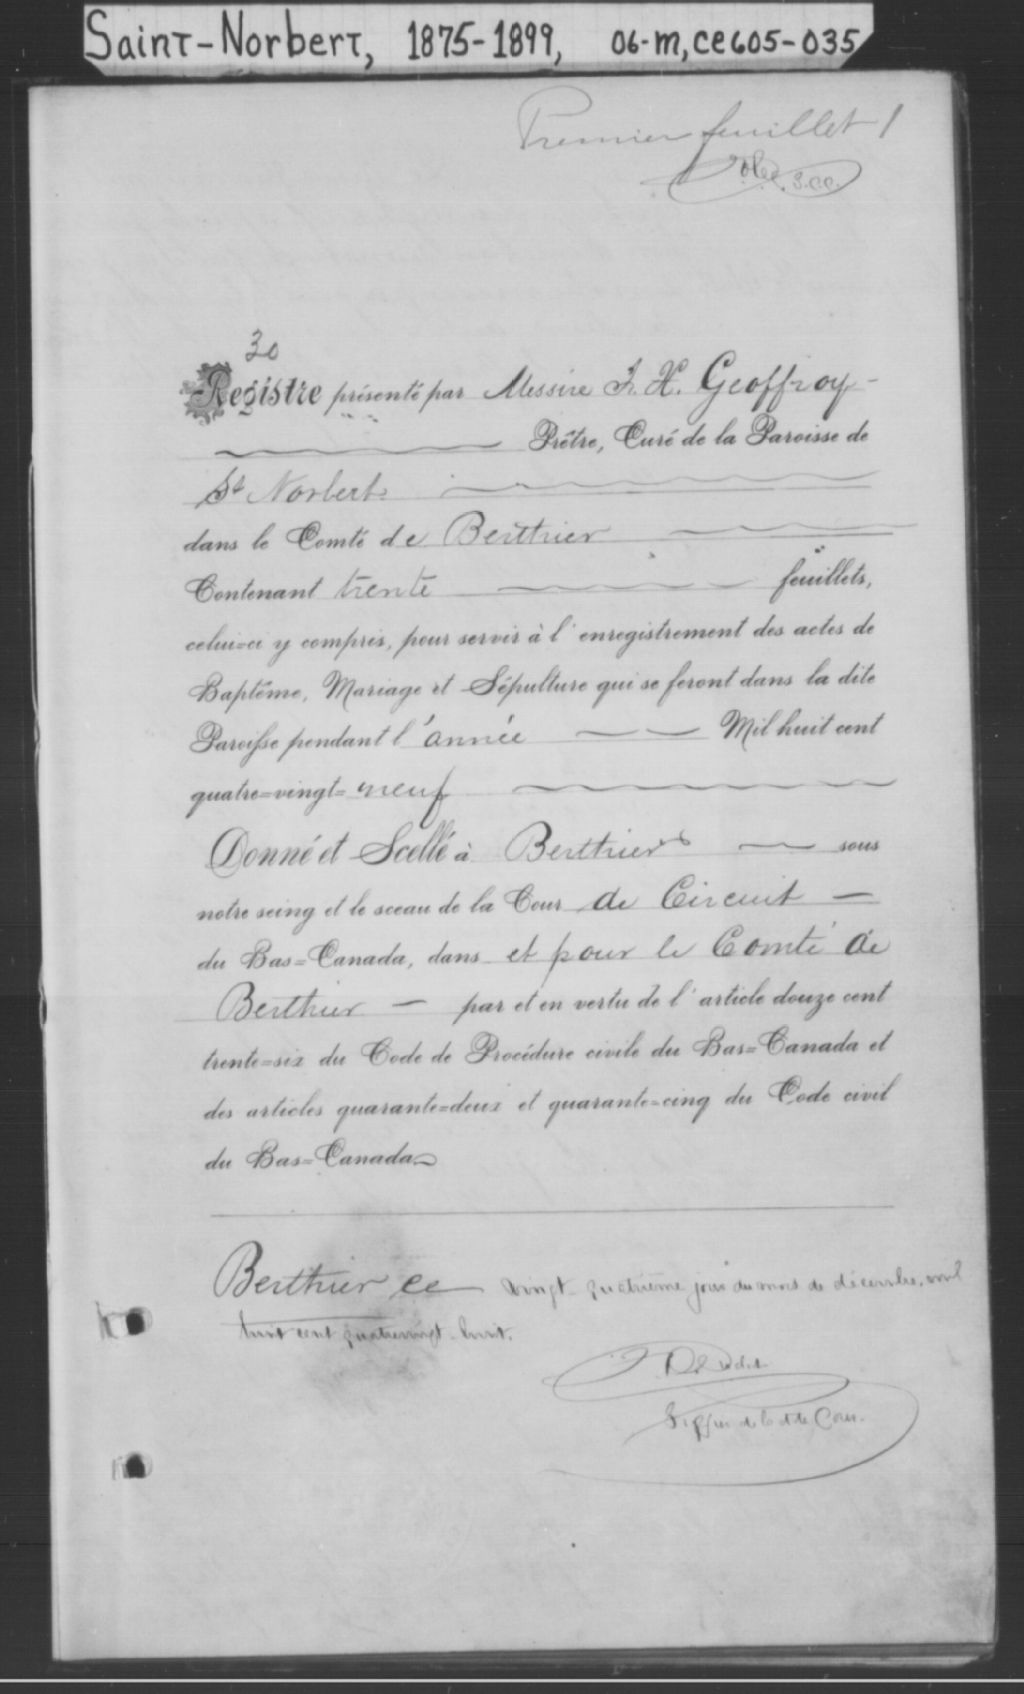 Saint-Norbert, 1875-1899, 06-M, CE605-035
Premier feuillet 1
S.C.C.
30
Registre présenté par Messire F. X. Geoffroy
Prêtre, Curé de la Paroisse de
St Norbert
dans le Comté de Berthier
Contenant trente feuillets,
celui=ci y compris, pour servir à l'enregistrement des actes de
Baptême, Mariage et Sépulture qui se feront dans la dite
Paroisse pendant l'année Mil huit cent
quatre=vingt=neuf
Donné et Scellé à Berthier sous
notre seing et le sceau de la Cour de Circuit
du Bas=Canada, dans et pour le Comté de
Berthier par et en vertu de l'article douze cent
trente=six du Code de Procédure civile du Bas=Canada et
des articles quarante=deux et quarante=cinq du Code civil
du Bas=Canada
Berthier ce vingt-quatrième jour du mois de décembre, mil
huit cent quatrevingt-huit.
Greffier de la dite Cour.